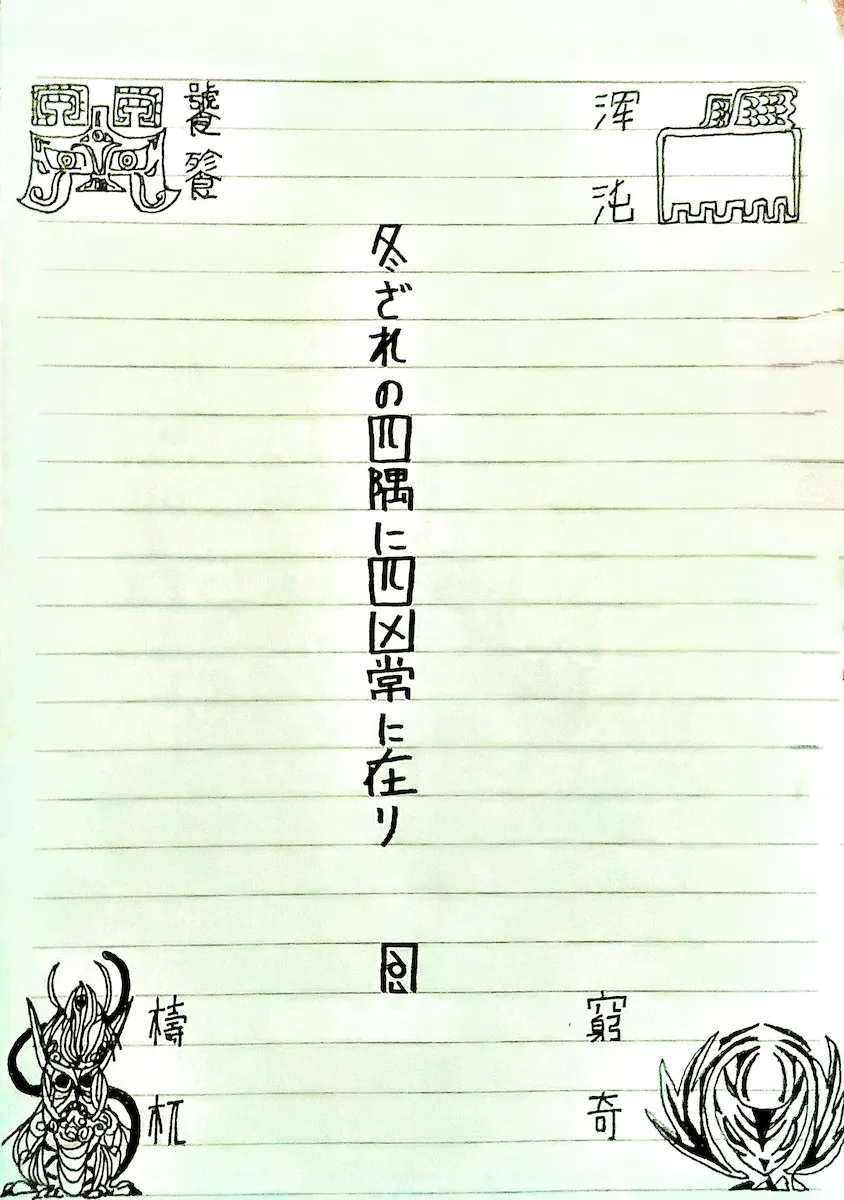 渾
沌
饕
餮
冬ざれの四隅に四凶常に在り
窮
奇
檮
杌